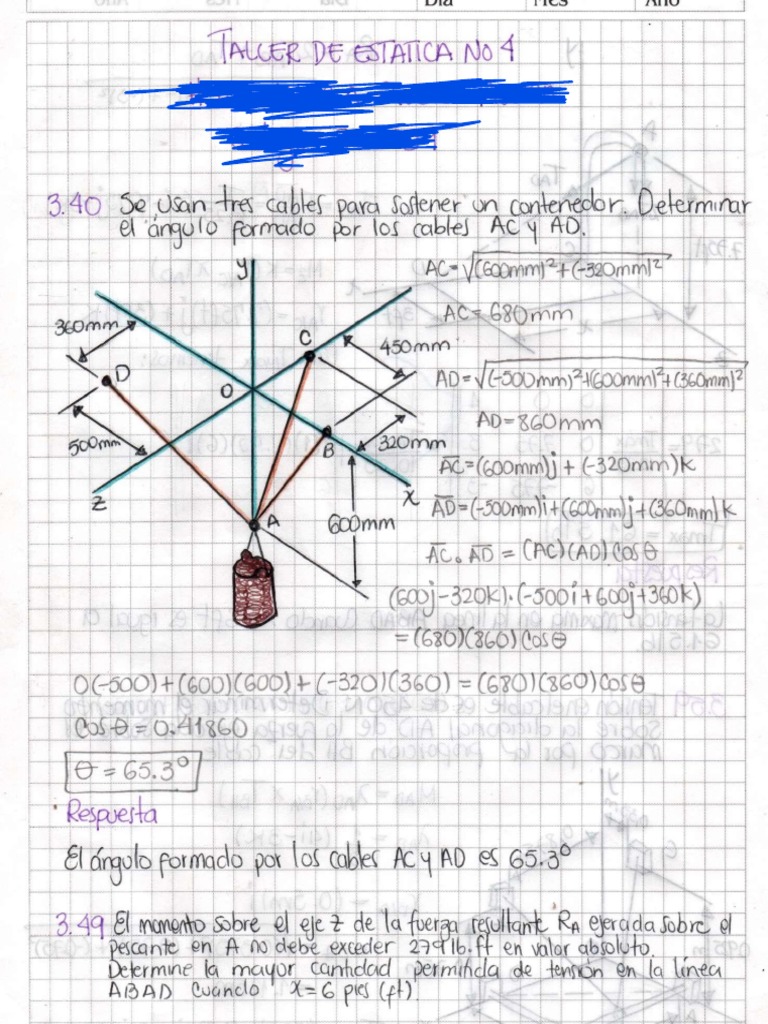 Día Mes Año
TALLER DE ESTATICA No 4
3.40 Se usan tres cables para sostener un contenedor. Determinar
el ángulo formado por los cables AC y AD.
y
360mm
D
C
O
450mm
500mm
B
320mm
z
A
600mm
x
AC=√(600mm)²+(-320mm)²
AC=680mm
AD=√(-500mm)²+(600mm)²+(360mm)²
AD=860mm
AC=(600mm)j+(-320mm)k
AD=(-500mm)i+(600mm)j+(360mm)k
AC·AD = (AC)(AD)Cosθ
(600j-320k)·(-500i+600j+360k)
=(680)(860)cosθ
0(-500)+(600)(600)+(-320)(360)=(680)(860)cosθ
Cosθ=0.41860
θ=65.3°
Respuesta
El ángulo formado por los cables AC y AD es 65.3°
3.49 El momento sobre el eje z de la fuerza resultante RA ejercida sobre el
pescante en A no debe exceder 279 lb.ft en valor absoluto.
Determine la mayor cantidad permitida de tensión en la línea
ABAD cuando x=6 pies (ft)